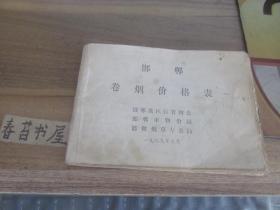 邯郸
卷烟价格表
邯郸地区行署物价
邯郸市物价局
邯郸烟草专卖局
一九八九年
春苔书屋